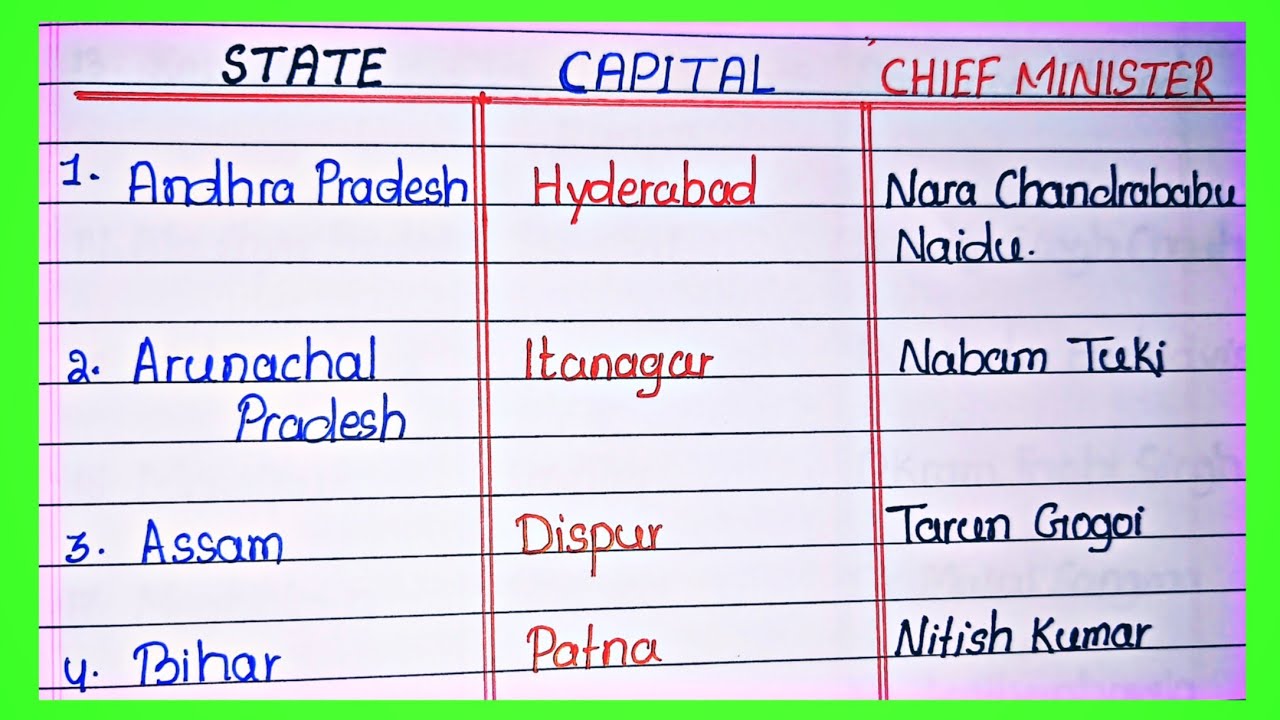 STATE CAPITAL CHIEF MINISTER
1. Andhra Pradesh Hyderabad Nara Chandrababu
Naidu.
2. Arunachal Itanagar Nabam Tuki
Pradesh
3. Assam Dispur Tarun Gogoi
4. Bihar Patna Nitish Kumar